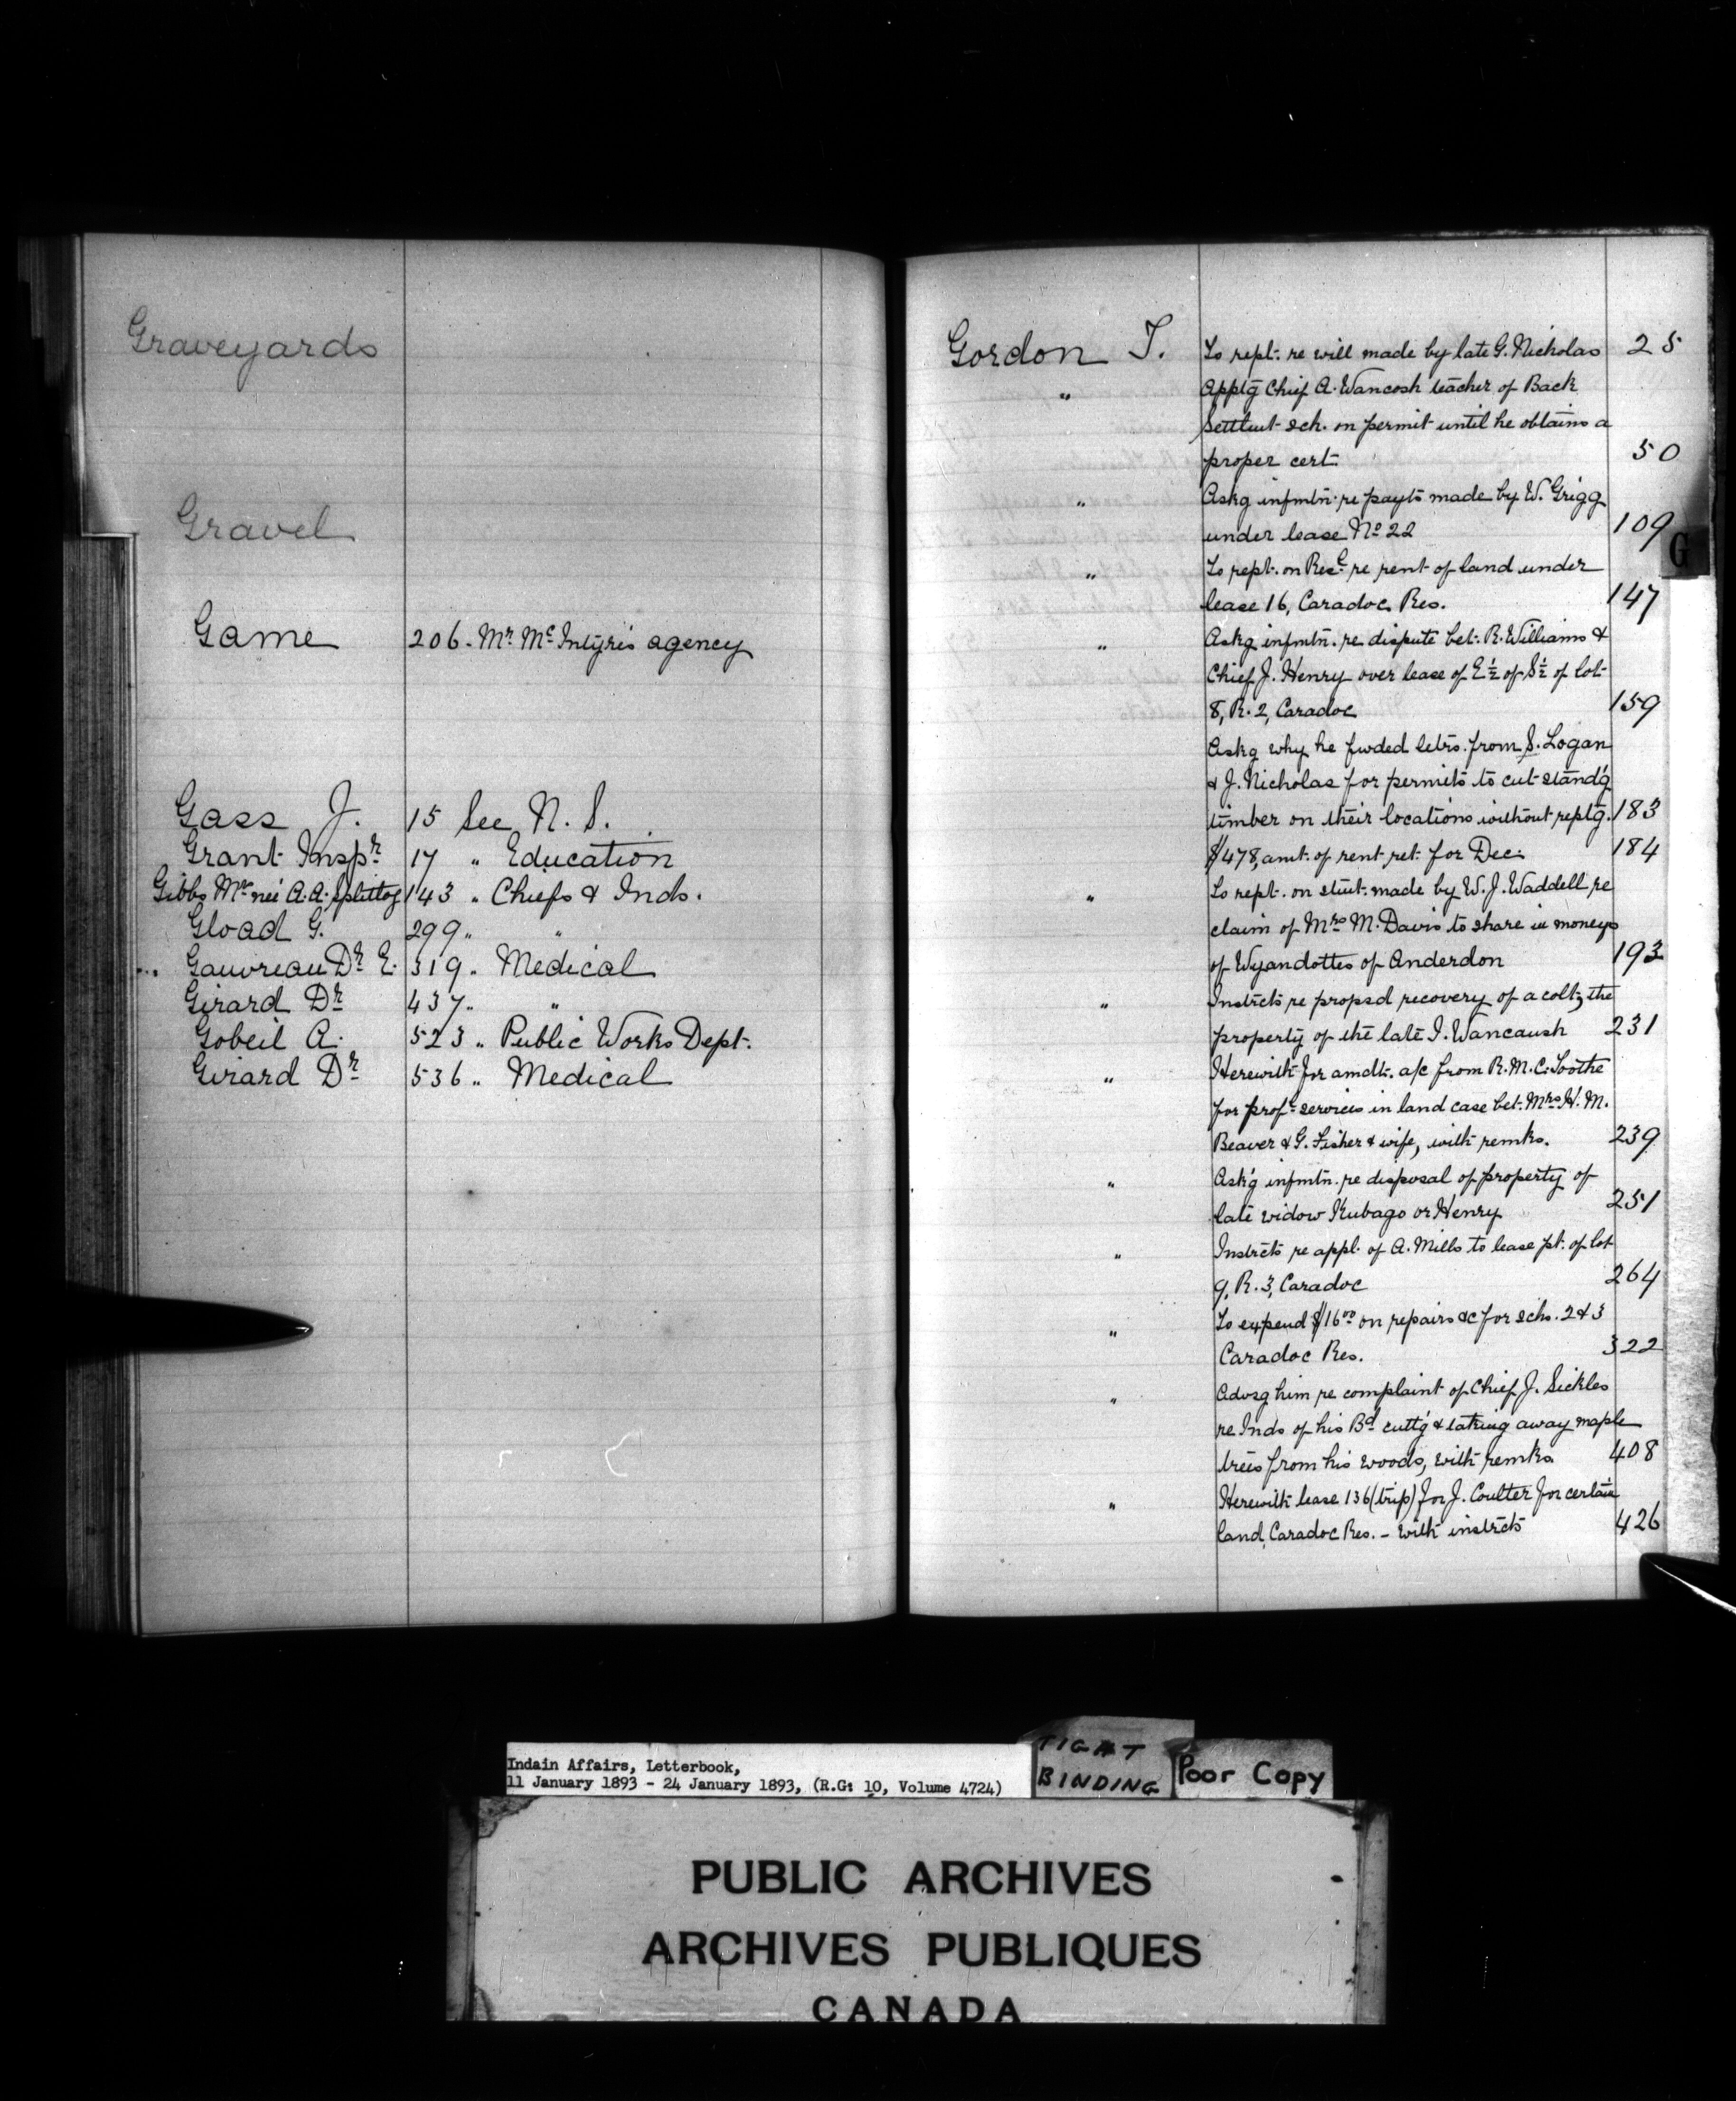 Graveyards
Gravel
Game 206 - Mr. McIntyre's agency
Gass J. 15 See N. S.
Grant Inspr 17 " Education
Gibbs Mrs neé A. A. Splitlog 143 " Chiefs & Inds.
Gload G. 299 " "
Gauvreau Dr E. 319 " Medical
Girard Dr 437 " "
Gobeil A. 523 " Public Works Dept.
Girard Dr 536 " Medical
Gordon T. To rept. re will made by late G. Nicholas 25
" Apptg Chief A. Wancosh teacher of Back
Settlmt sch. on permit until he obtains a
proper cert. 50
" Askg infmtn. re payts made by W. Grigg
under lease No 22 109
G
" To rept. on Resc. re rent of land under
lease 16, Caradoc Res. 147
" Askg infmtn. re dispute bet. R. Williams &
Chief J. Henry over lease of E ½ of S ½ of lot
8, R. 2, Caradoc 159
Askg why he fwded letrs. from S. Logan
& J. Nicholas for permits to cut stand'g
timber on their locations without reptg. 183
$478, amt. of rent, ret. for Dec. 184
" To rept. on stmt. made by W. J. Waddell re
claim of Mrs M. Davis to share in moneys
of Wyandottes of Anderdon 193
" Instrcts re propsd recovery of a colt, the
property of the late I. Wancaush 231
" Herewith for amdt. a/c from R. M. C. Toothe
for profl. services in land case bet. Mrs H. M.
Beaver & G. Fisher & wife, with remks. 239
" Ask'g infmtn. re disposal of property of
late widow Kubago or Henry 251
" Instrcts re appl. of A. Mills to lease pt. of lot
9, R. 3, Caradoc 264
" To expend $16.00 on repairs &c for schs. 2 & 3
Caradoc Res. 322
" Advsg him re complaint of Chief J. Sickles
re Inds of his Bd cutt'g & taking away maple
trees from his woods, with remks. 408
" Herewith lease 136 (trip) for J. Coulter for certain
land, Caradoc Res. - with instrcts 426
Indain Affairs, Letterbook,
11 January 1893 - 24 January 1893, (R.G: 10, Volume 4724)
TIGHT
BINDING
Poor Copy
PUBLIC ARCHIVES
ARCHIVES PUBLIQUES
CANADA